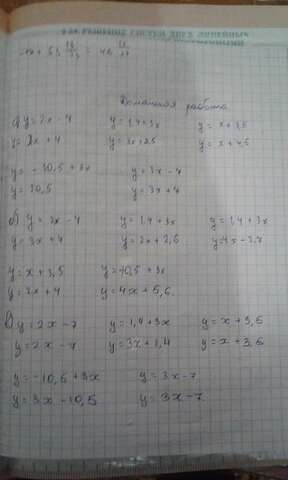 РЕШЕНИЕ СИСТЕМ ДВУХ ЛИНЕЙНЫХ
Домашняя работа
а) y=2x-7 y=1,4+3x y=x+3,5
y=2x+4 y=3x+2,5 y=x+4,5
y=-10,5+3x y=3x-7
y=10,5 y=3x+7
б) y=2x-7 y=1,4+3x y=1,4+3x
y=3x+7 y=2x+2,6 y=4x-2,7
y=x+3,5 y=10,5+3x
y=2x+4 y=4x+5,6
y=2x-7 y=1,4+3x y=x+3,6
y=2x-7 y=3x+1,4 y=x+3,6
y=-10,5+3x y=3x-7
y=3x-10,5 y=3x-7